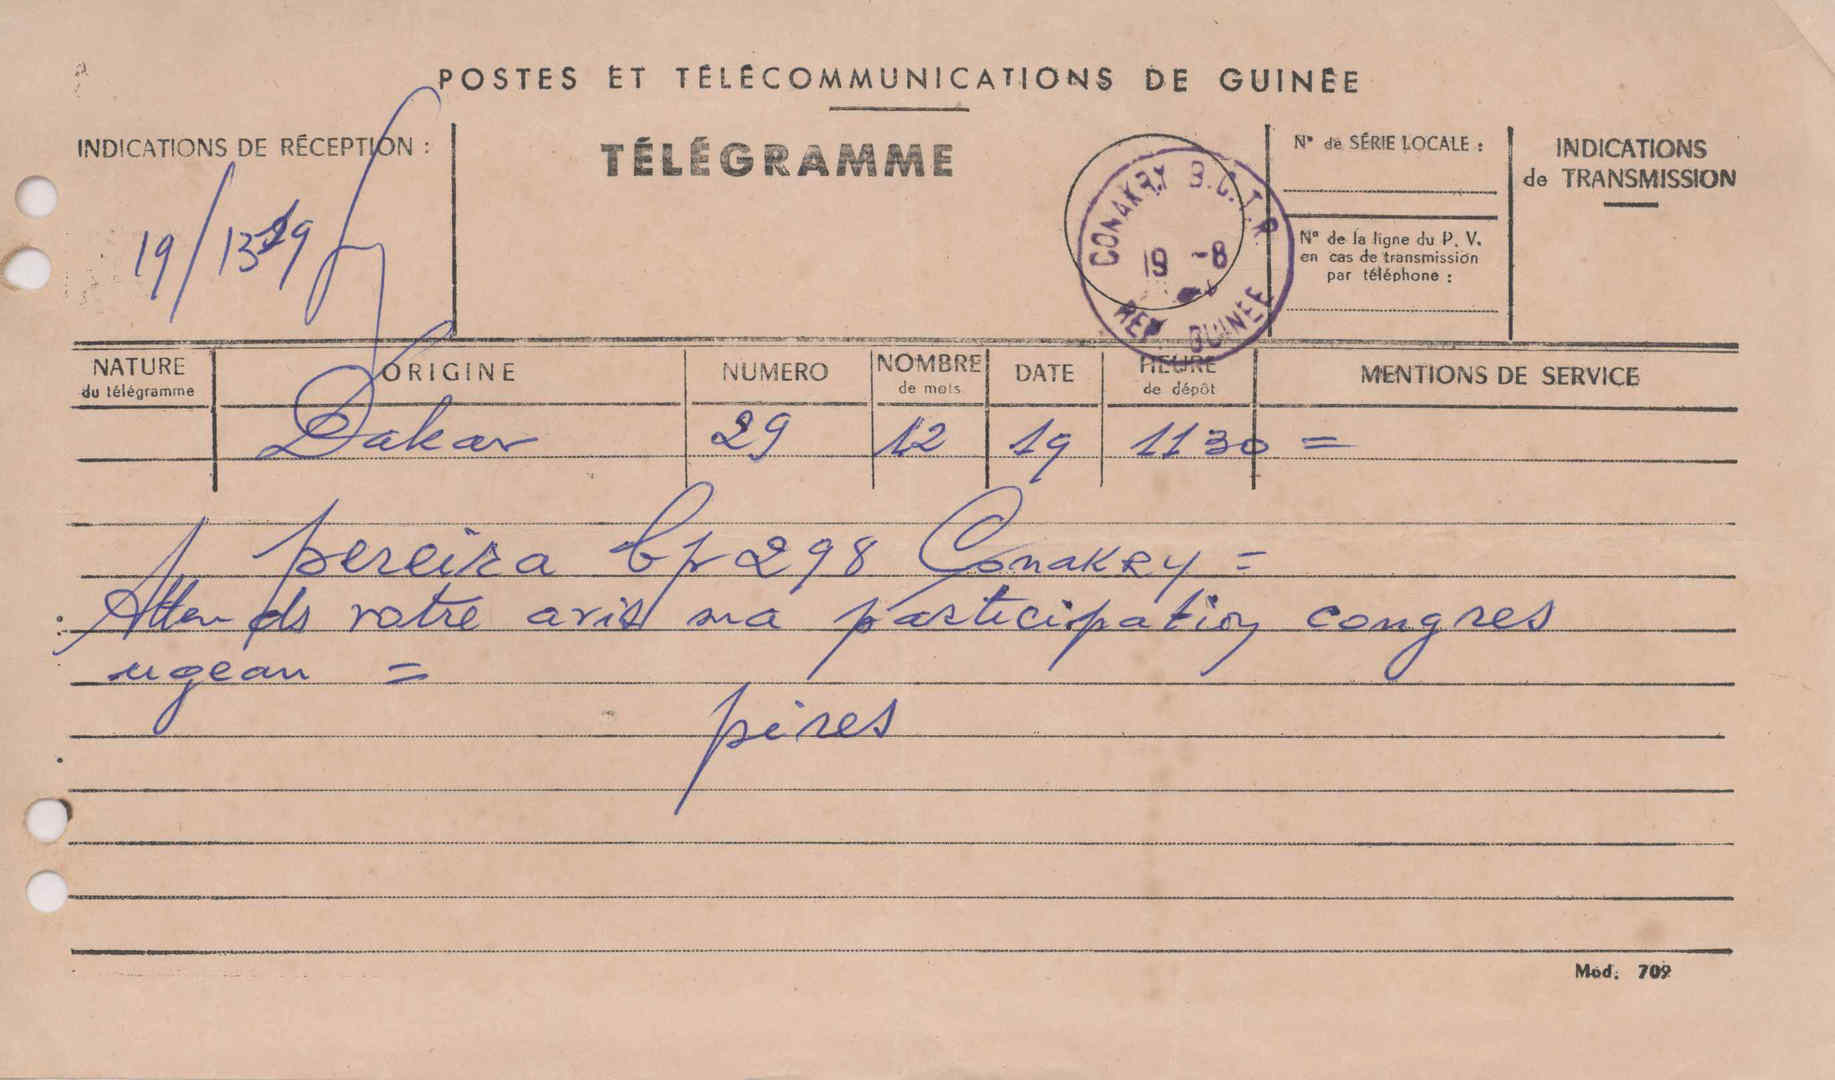 POSTES ET TÉLÉCOMMUNICATIONS DE GUINÉE
INDICATIONS DE RÉCEPTION :
19/13
TÉLÉGRAMME
CONAKRY
19 -8
REP GUINÉE
N° de SÉRIE LOCALE :
N° de la ligne du P. V.
en cas de transmission
par téléphone :
INDICATIONS
de TRANSMISSION
NATURE
du télégramme
ORIGINE
NUMERO
NOMBRE
de mots
DATE
HEURE
de dépôt
MENTIONS DE SERVICE
Dakar 29 12 19 1130 =
pereira bp 298 Conakry =
Attends votre avis ma participation congres
ugean =
pires
Mod. 709